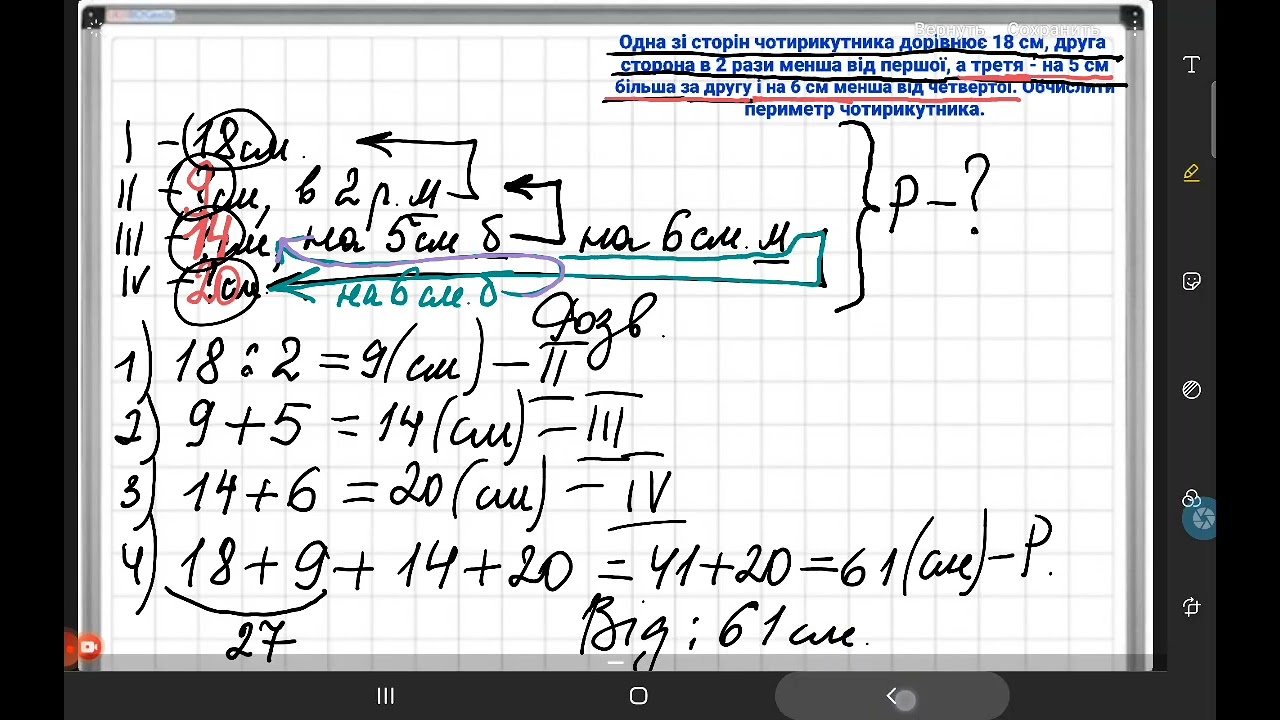 Вернуть Сохранить
Одна зі сторін чотирикутника дорівнює 18 см, друга
сторона в 2 рази менша від першої, а третя - на 5 см
більша за другу і на 6 см менша від четвертої. Обчислити
периметр чотирикутника.
I - 18см.
II - 9 см, в 2 р. м
III - 14 см, на 5см б на 6см. м
IV - 20 см.
на 6 см. б
P - ?
Розв.
1) 18 : 2 = 9(см) - II
2) 9 + 5 = 14(см) - III
3) 14 + 6 = 20(см) - IV
4) 18 + 9 + 14 + 20 = 41 + 20 = 61(см) - P.
27
Від : 61 см.